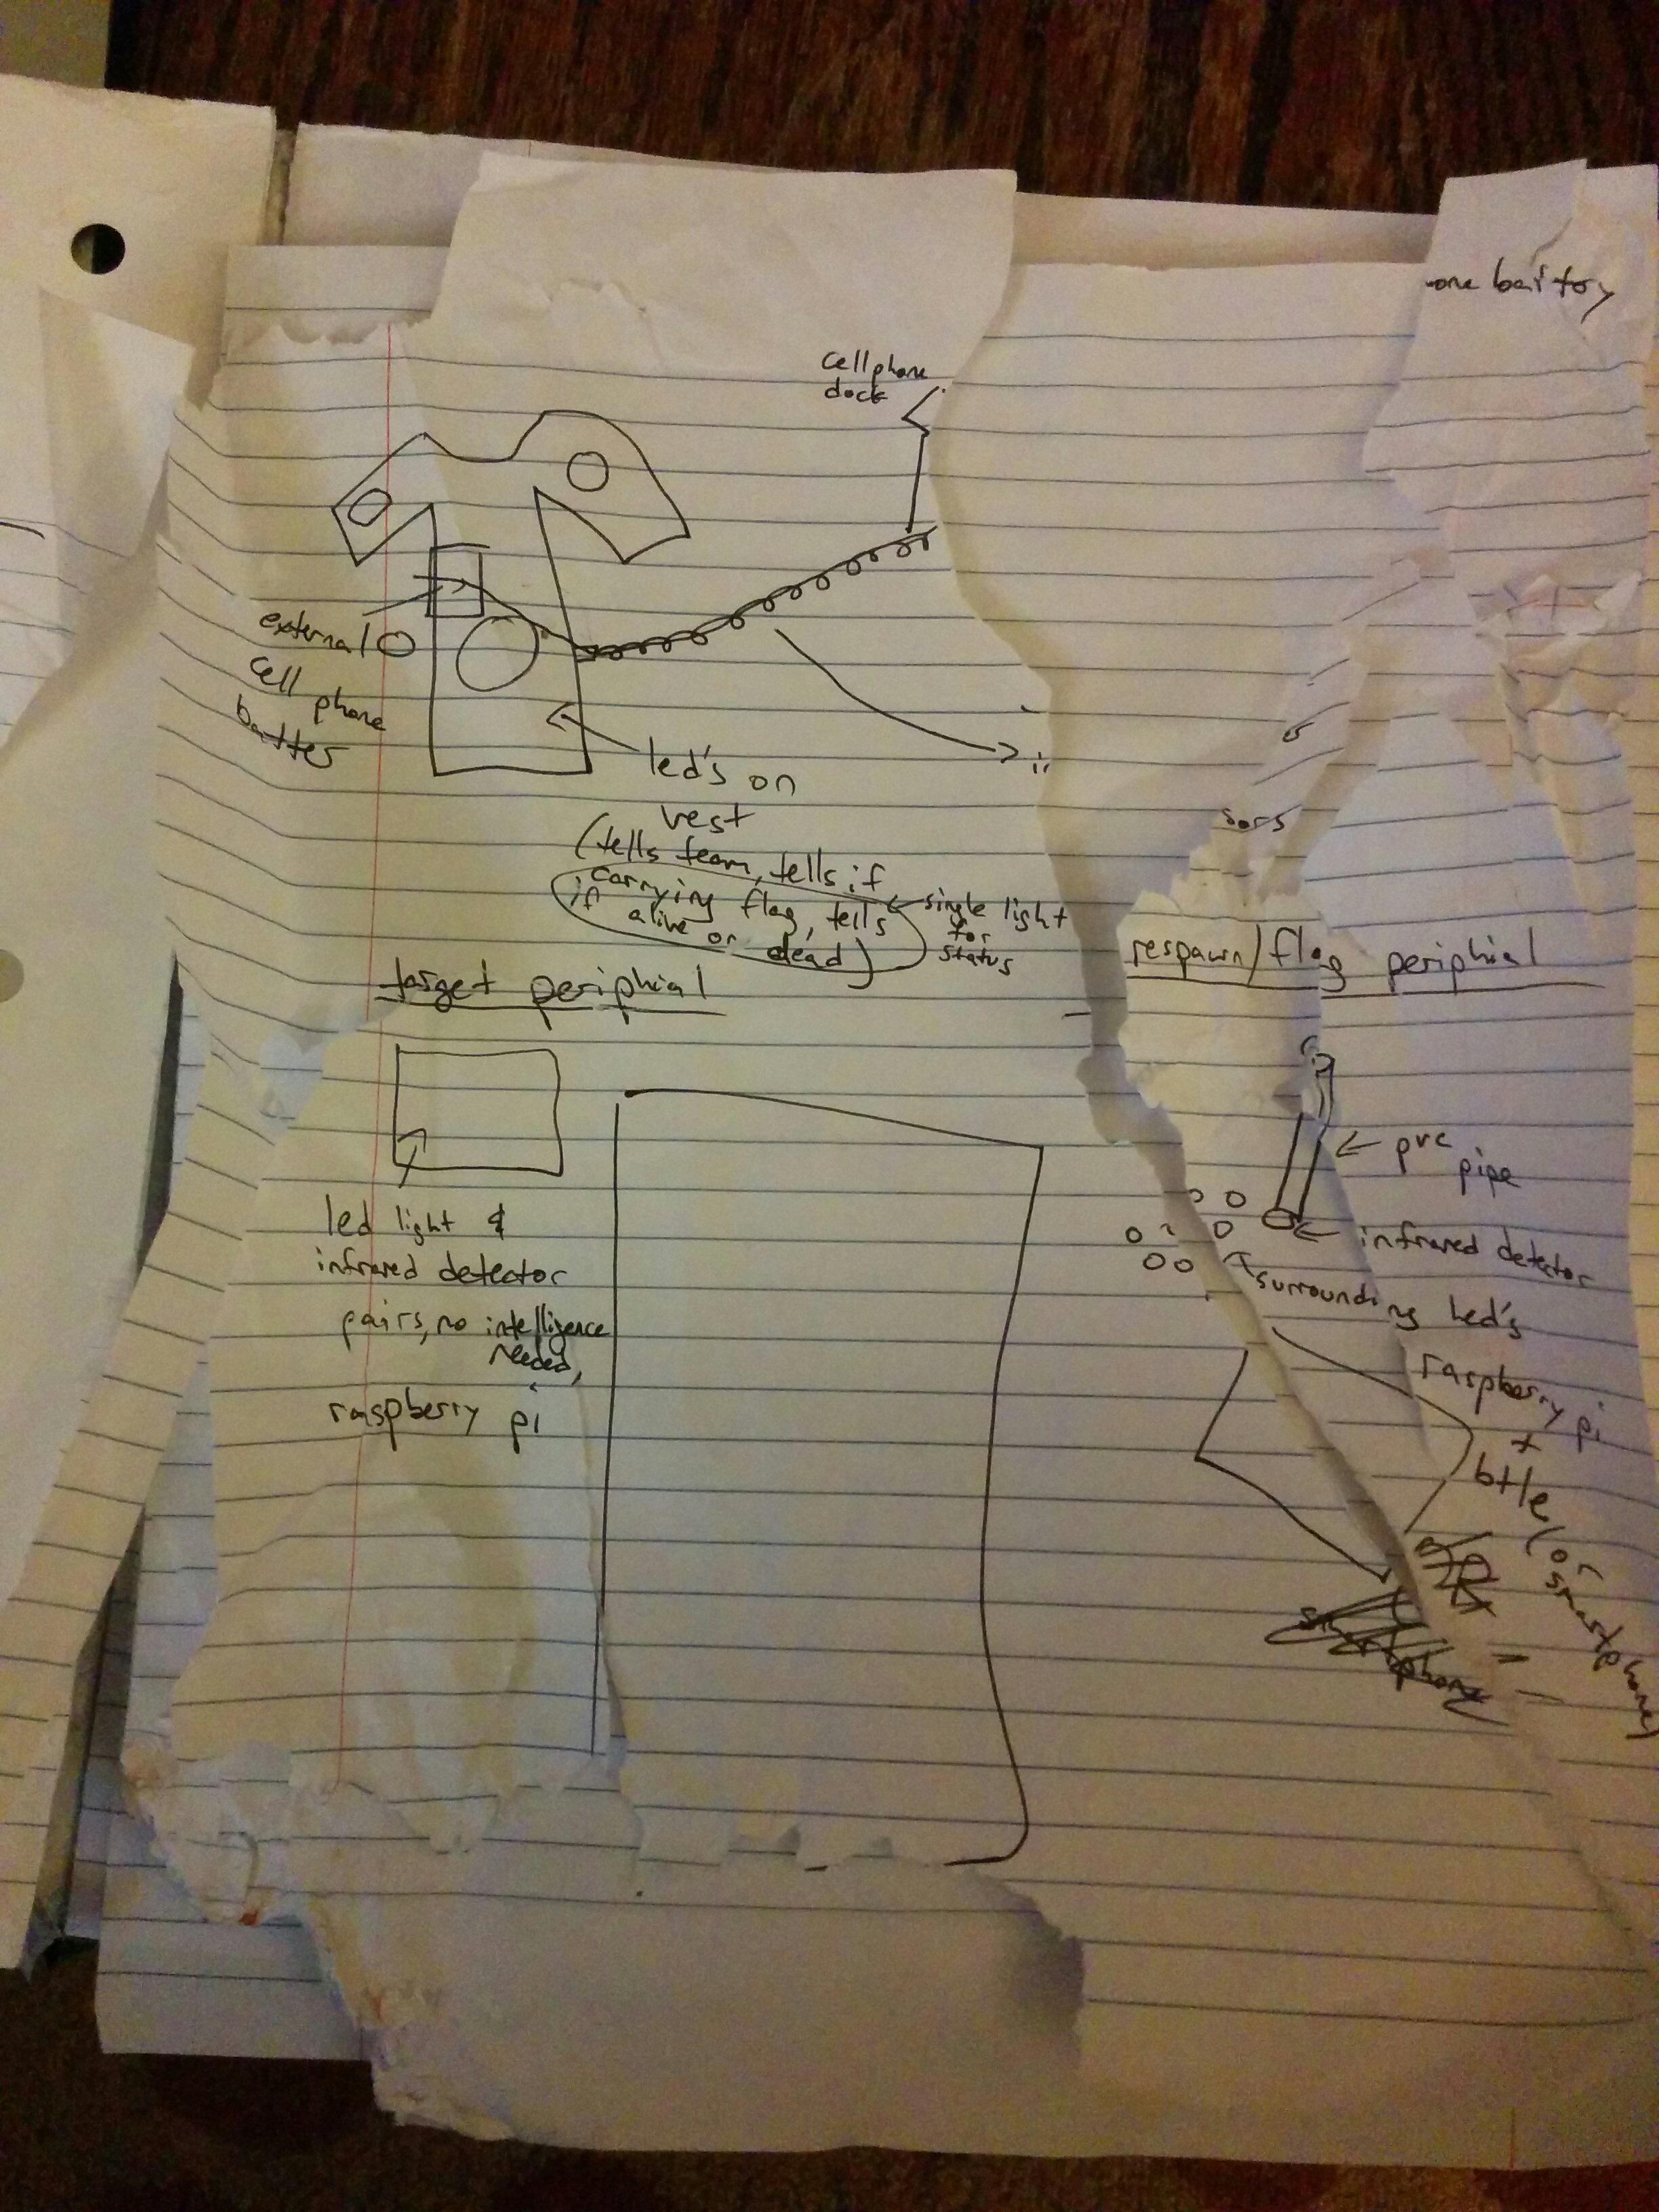 one battry
cellphone
dock
external
cell phone
batter
led's on
vest
(tells team, tells if
carrying flag, tells
if alive or dead)
single light
for
status
sors
target periphial
led light &
infrared detector
pairs, no intelligence
needed,
raspberry pi
respawn/flag periphial
pvc
pipe
infrared detector
surrounding led's
raspberry pi
+
btle (or
smartphone)